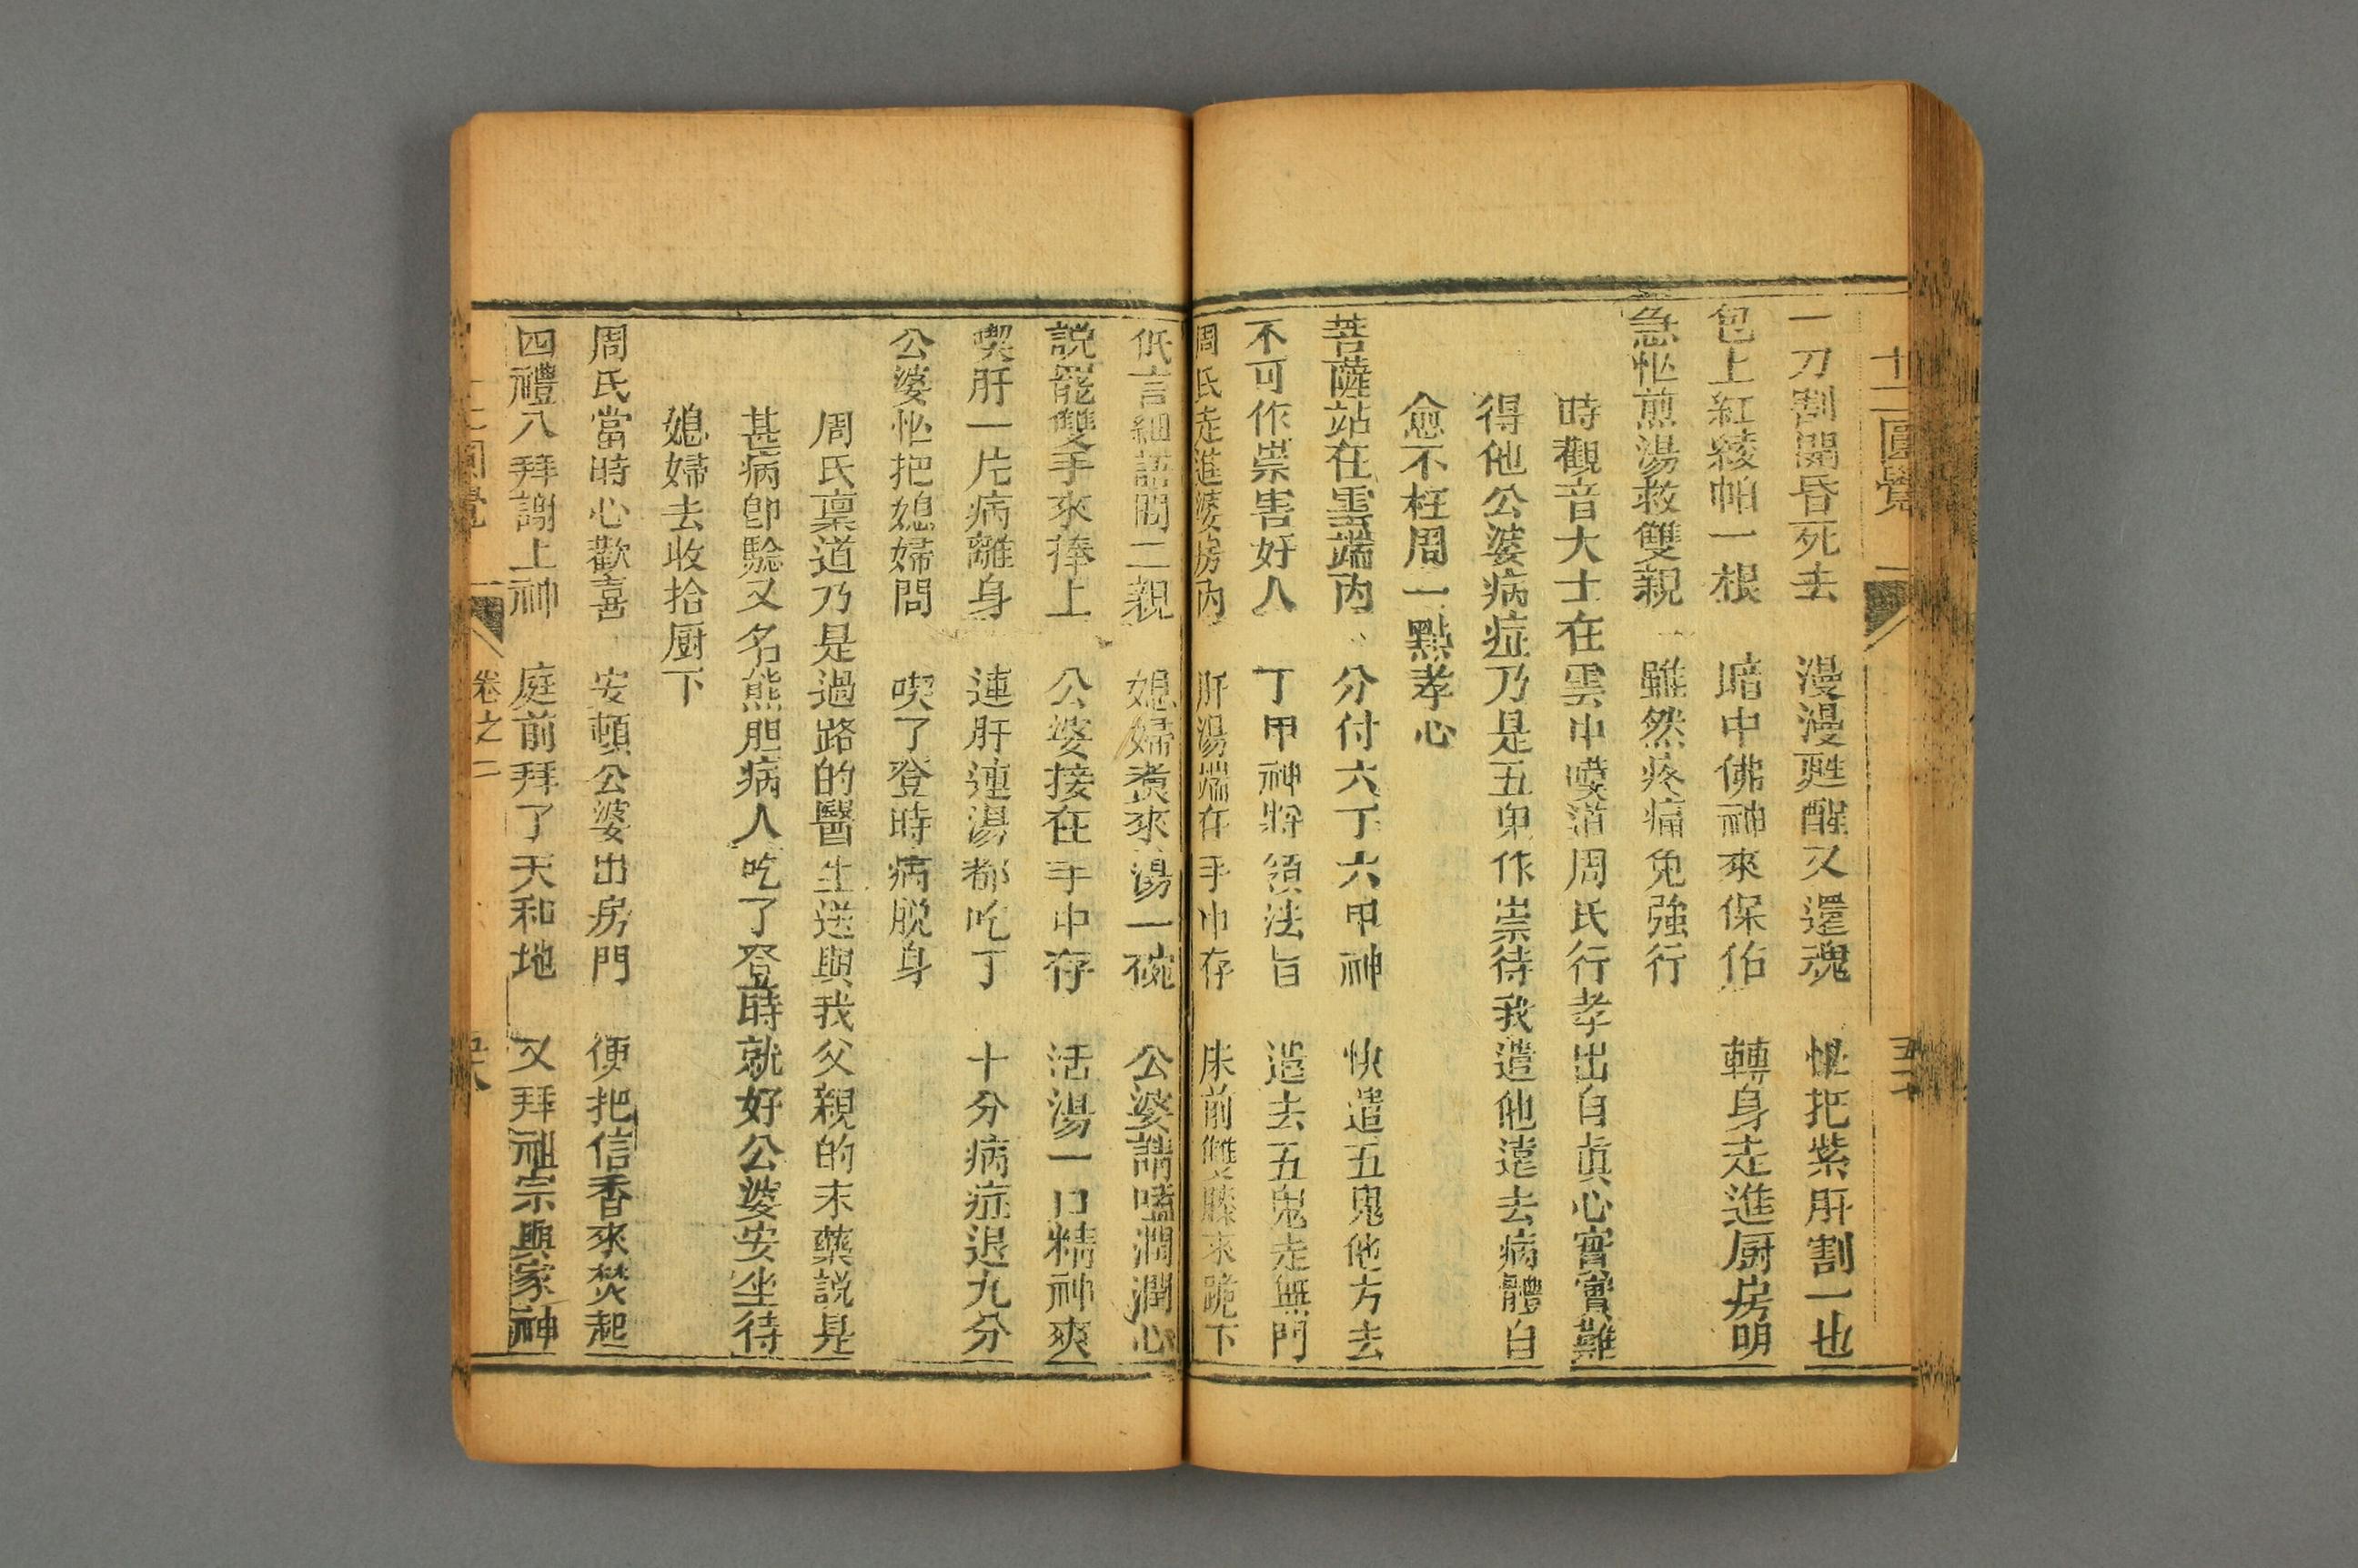 十二圓覺
一刀割開昏死去 漫漫甦醒又還魂 怔把紫肝割一也
包上紅綾帕一根 暗中佛神來保佑 轉身走進厨房明
急怔煎湯救雙親 雖然疼痛免強行
時觀音大士在雲中嘆道周氏行孝出自真心實實難
得他公婆病症乃是五鬼作祟待我遣他遠去病體自
愈不枉周一點孝心
菩薩站在雲端內 分付六丁六甲神 快遣五鬼他方去
不可作祟害好人 丁甲神將領法旨 造去五鬼走無門
周氏走進婆房內 肝湯端在手中存 床前雙膝來跪下
低言細語問二親 媳婦煑來湯一碗 公婆請嗑潤潤心
説罷雙手來捧上 公婆接在手中存 活湯一口精神爽
喫肝一片病離身 連肝連湯都吃了 十分病症退九分
公婆怔把媳婦問 喫了登時病脱身
周氏禀道乃是過路的醫生送與我父親的末藥説是
甚病卽騐又名熊胆病人吃了登時就好公婆安坐待
媳婦去收拾厨下
周氏當時心歡喜 安頓公婆出房門 便把信香來焚起
四禮八拜謝上神 庭前拜了天和地 又拜祖宗與家神
卷之二